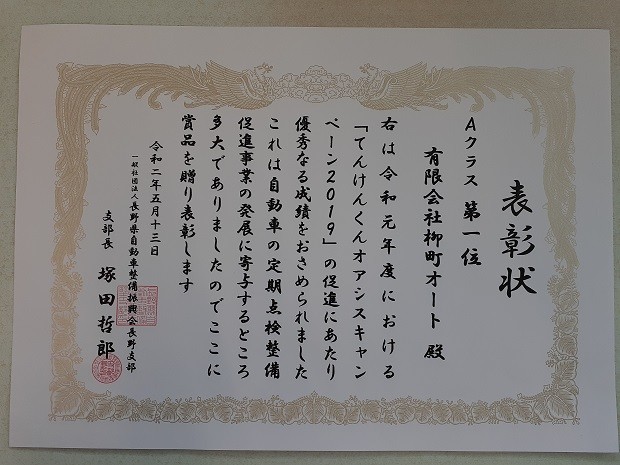 表彰状
Aクラス 第一位
有限会社柳町オート 殿
右は令和元年度における
「てんけんくんオアシスキャン
ペーン2019」の促進にあたり
優秀なる成績をおさめられました
これは自動車の定期点検整備
促進事業の発展に寄与するところ
多大でありましたのでここに
賞品を贈り表彰します
令和二年五月十三日
一般社団法人長野県自動車整備振興会長野支部
支部長 塚田哲郎